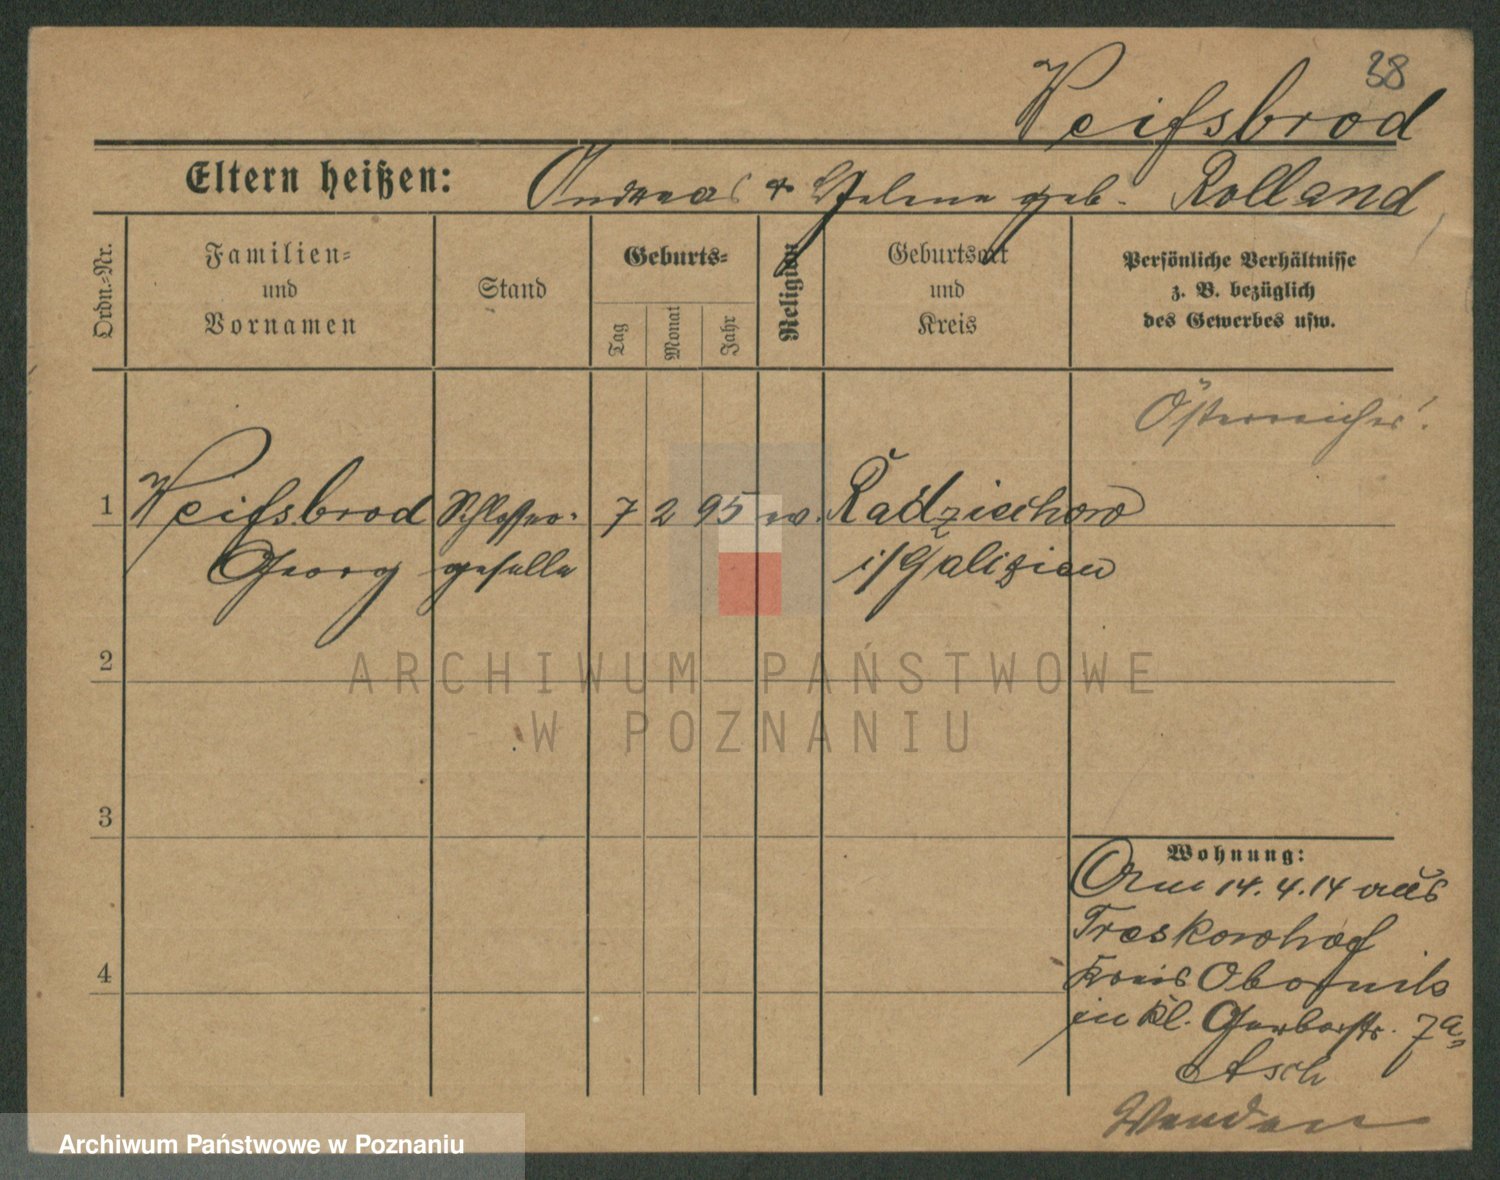 38
Weissbrod
Eltern heißen: Andreas & Helene geb. Rolland
Ordn.-Nr.
Familien-
und
Vornamen
Stand
Geburts-
Tag
Monat
Jahr
Religion
Geburtsort
und
Kreis
Persönliche Verhältnisse
z. B. bezüglich
des Gewerbes usw.
Österreicher!
1 Weissbrod Schlosser- 7 2 95 Radziechow
Georg geselle i/Galizien
2
3
4
ARCHIWUM PAŃSTWOWE
W POZNANIU
Wohnung:
Am 14.4.14 aus
Treskowhof
Kreis Obornik
in Kl. Gerberstr. 7a
Asch
Wenden
Archiwum Państwowe w Poznaniu